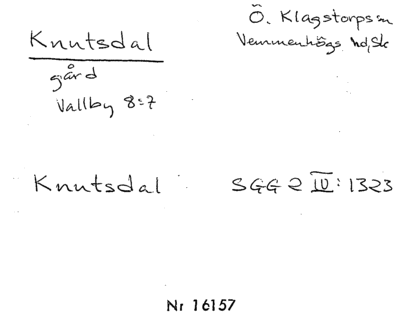 Knutsdal
Ö. Klagstorps sn
Vemmenhögs hd, Sk
gård
Vallby 8:7
Knutsdal
SGG 2 IV: 1323
Nr 16157